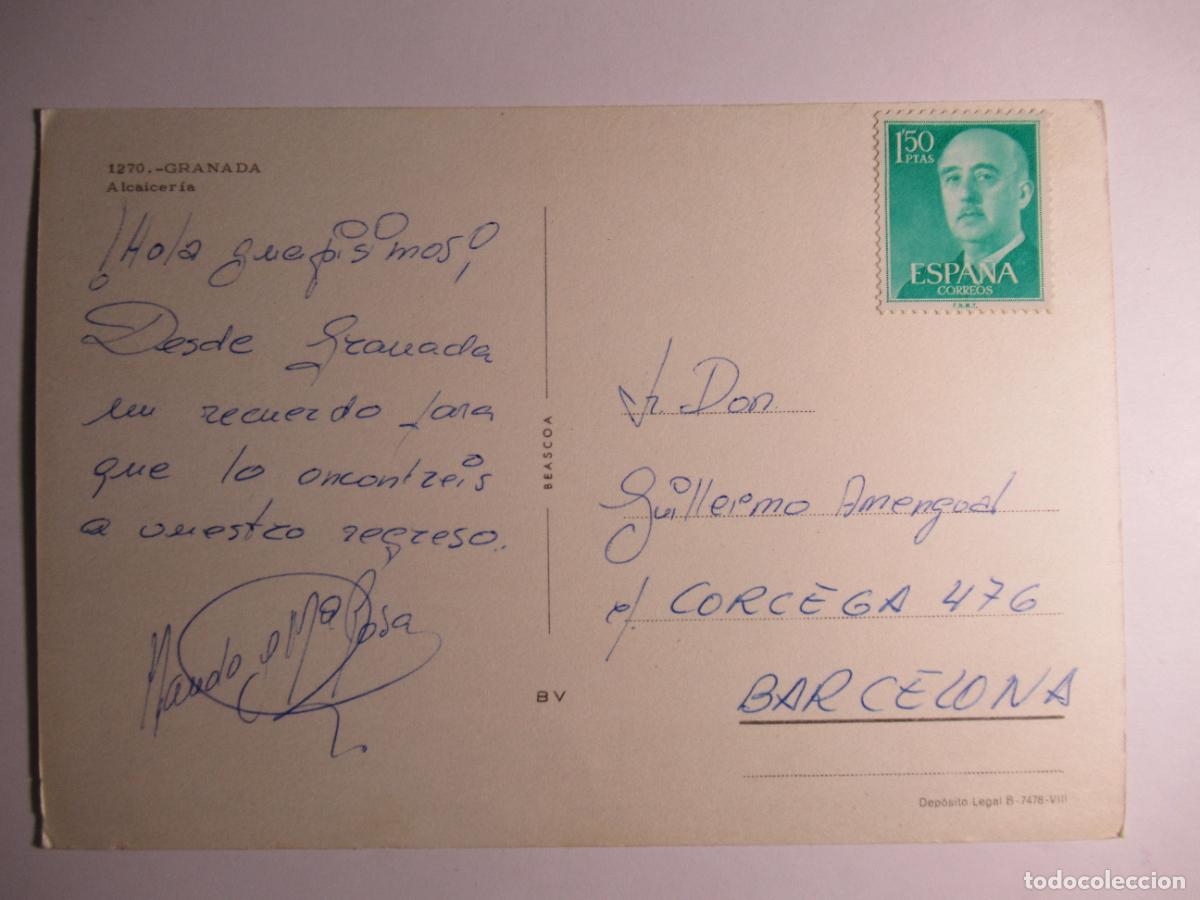 1270.-GRANADA
Alcaicería
¡Hola guapisimos!
Desde Granada
un recuerdo para
que lo encontreis
a nuestro regreso.
y Mª Rosa
BEASCOA
BV
1'50
PTAS
ESPAÑA
CORREOS
F.N.M.T.
Sr. Don
Guillermo Amengual
c/. CORCEGA 476
BARCELONA
Depósito Legal B-7478-VIII
todocoleccion